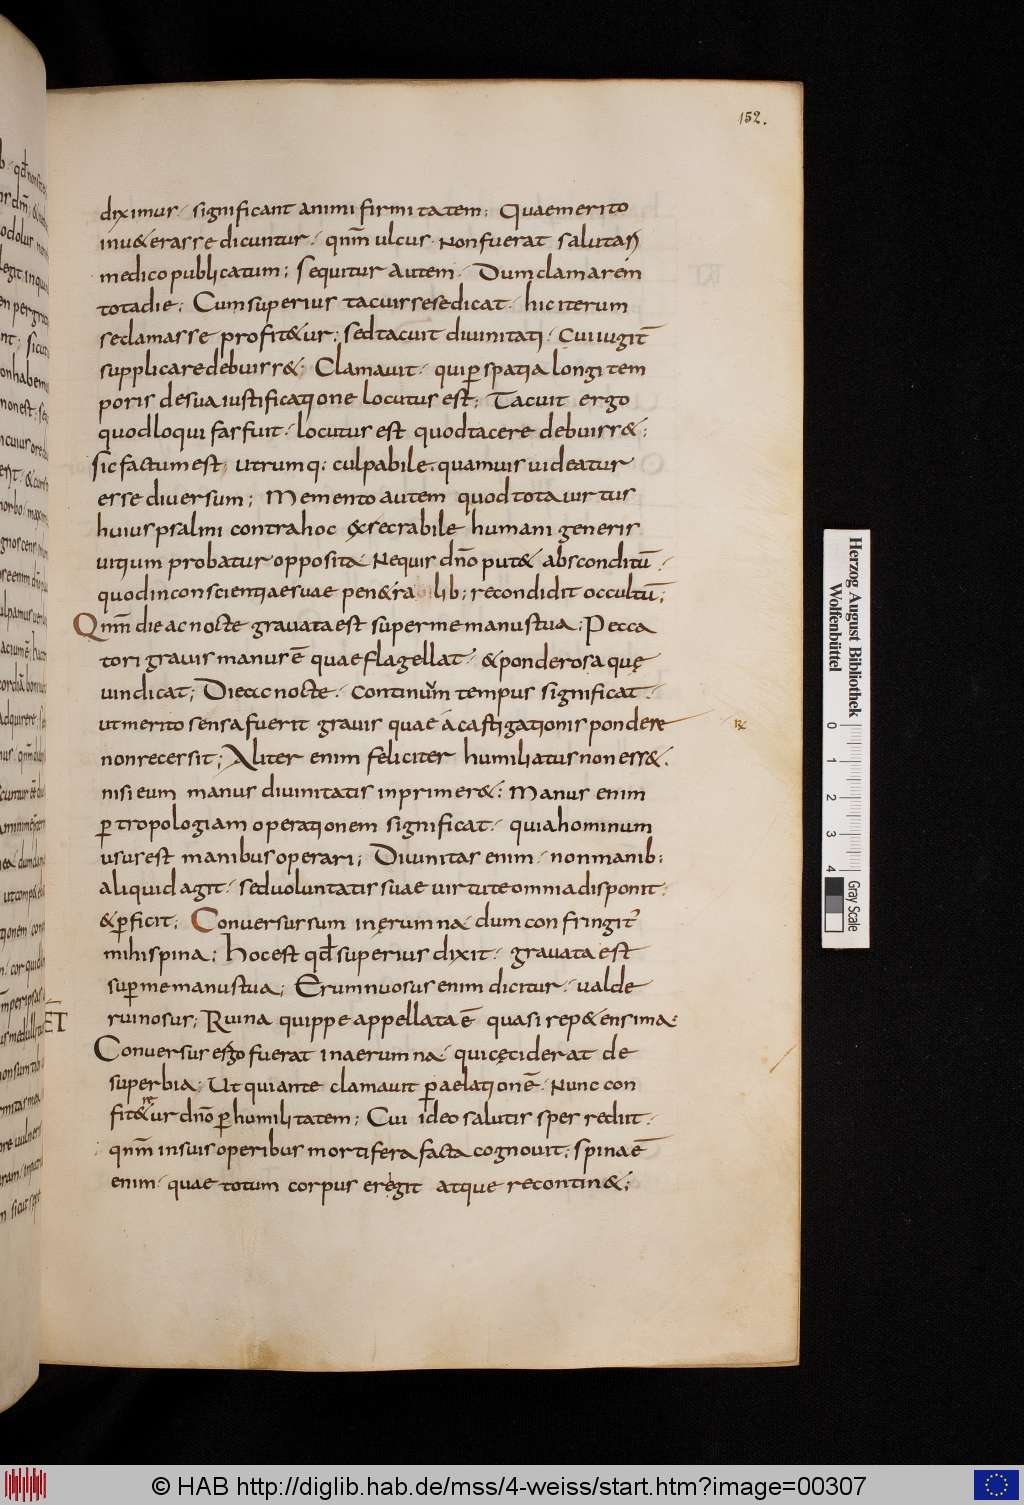 152.
diximus · significant animi firmitatem; Quae merito
inu&erasse dicuntur · qnm̄ ulcus · Non fuerat salutari
medico publicatum; sequitur autem · Dum clamarem
tota die; Cum superius tacuisse se dicat · hic iterum
se clamasse profit&ur; sed tacuit diuinitati · Cui iugit̄
supplicare debuiss&; Clamauit · qui ꝑ spatia longi tem
poris de sua iustificatione locutus est; Tacuit ergo
quod loqui fas fuit · locutus est quod tacere debuiss&;
sic factum est, utrumq; culpabile · quamuis uideatur
esse diuersum; Memento autem quod tota uirtus
huius psalmi contra hoc exsecrabile humani generis
uitium probatur opposita Ne quis dn̄o put& absconditū ·
quod in conscientiae suae pen&ra lib; recondidit occultū;
Qnm̄ die ac nocte grauata est super me manus tua; Pecca
tori grauis manus ē quae flagellat · & ponderosa quę
uindicat; Die ac nocte · continuum tempus significat ·
ut merito sensa fuerit grauis quae a castigationis pondere
non recessit; Aliter enim feliciter humiliatus non ess& ·
nisi eum manus diuinitatis inprimer&; Manus enim
ꝑ tropologiam operationem significat · quia hominum
usus est manibus operari; Diuinitas enim · non manib;
aliquid agit · sed uoluntatis suae uirtute omnia disponit
& ꝑficit; Conuersus sum in ęrumna dum confringit᷒
mihi spina; Hoc est qđ superius dixit · grauata est
suꝑ me manus tua; Erumnuosus enim dicitur · ualde
ruinosus; Ruina quippe appellata ē quasi rep&ens ima;
Conuersus ergo fuerat in aerumna · qui cęciderat de
superbia; Ut qui ante clamauit ꝑ aelationē · Nunc con
fit&ur dn̄o ꝑ humilitatem; Cui ideo salutis spes rediit ·
re
qnm̄ in suis operibus mortifera facta cognouit; spina ē
enim · quae totum corpus eregit atque recontin&;
ET
Herzog August Bibliothek
Wolfenbüttel
0 1 2 3 4
Gray Scale
© HAB http://diglib.hab.de/mss/4-weiss/start.htm?image=00307